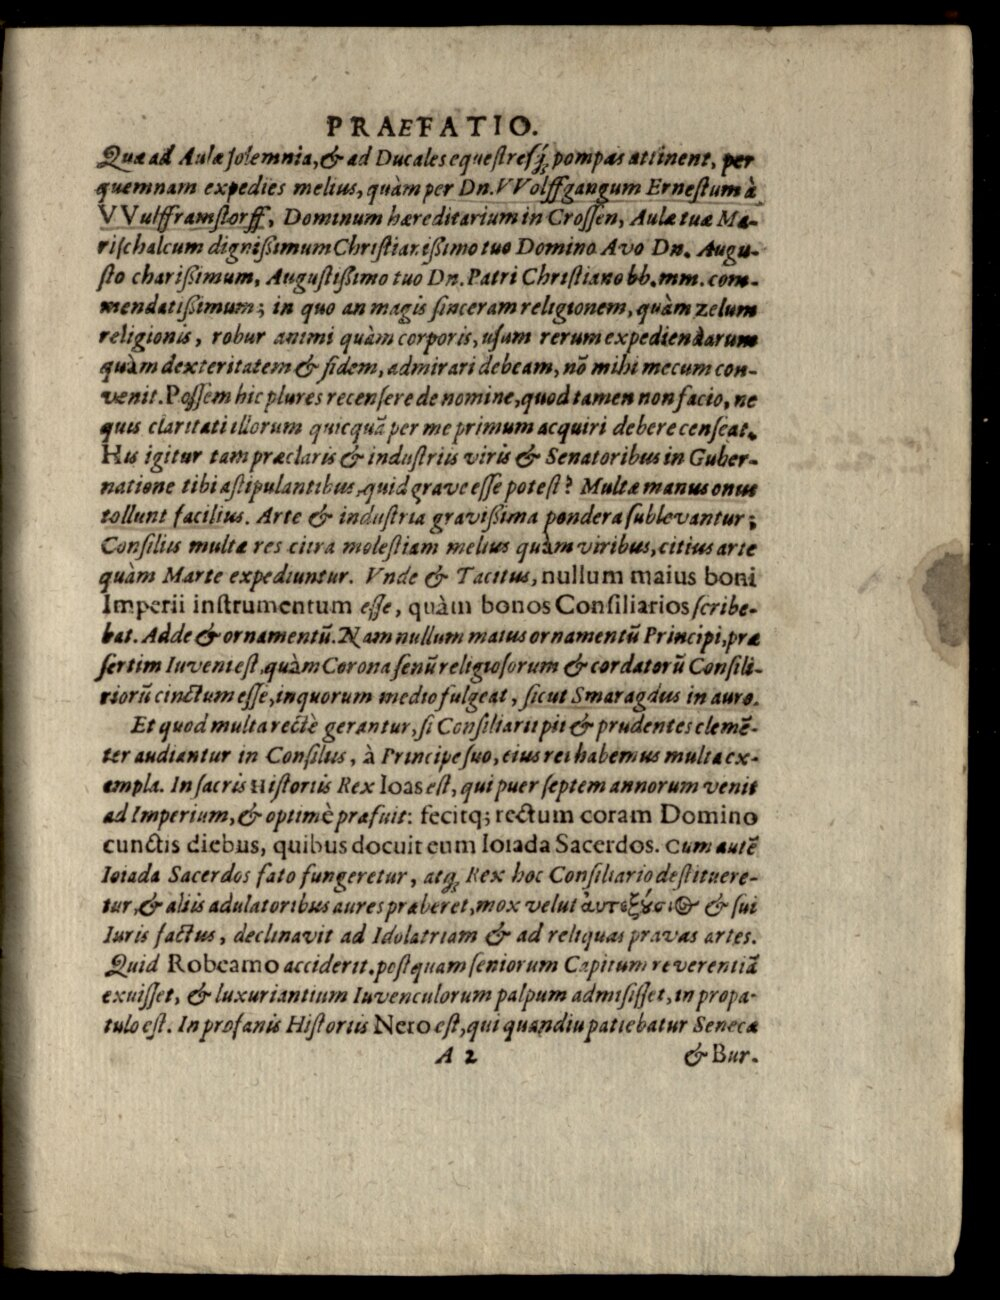 PRAEFATIO.
Quæ ad Aulæ solemnia, & ad Ducales equestresq; pompas attinent, per
quemnam expedies melius, quàm per Dn. VVolffgangum Ernestum à
VVulfframstorff, Dominum hæreditarium in Crossen, Aulæ tuæ Ma-
rischalcum dignißimum Christianißimo tuo Domino Avo Dn. Augu-
sto charißimum, Augustißimo tuo Dn. Patri Christiano bb. mm. com-
mendatißimum; in quo an magis sinceram religionem, quàm zelum
religionis, robur animi quàm corporis, usum rerum expediendarum
quàm dexteritatem & fidem, admirari debeam, nō mihi mecum con-
venit. Possem hic plures recensere de nomine, quod tamen non facio, ne
quis claritati illorum quicquā per me primum acquiri debere censeat.
His igitur tam præclaris & industriis viris & Senatoribus in Guber-
natione tibi astipulantibus, quid grave esse potest? Multæ manus onus
tollunt facilius. Arte & industria gravißima pondera sublevantur;
Consiliis multæ res citra molestiam melius quàm viribus, citius arte
quàm Marte expediuntur. Vnde & Tacitus, nullum maius boni
Imperii instrumentum esse, quàm bonos Consiliarios scribe-
bat. Adde & ornamentū. Nam nullum maius ornamentū Principi, præ
sertim Iuveni est, quàm Corona senū religiosorum & cordatorū Consili-
riorū cinctum esse, in quorum medio fulgeat, sicut Smaragdus in auro.
Et quod multa rectè gerantur, si Consiliarii pii & prudentes clemē-
ter audiantur in Consiliis, à Principe suo, eius rei habemus multa ex-
empla. In sacris Historiis Rex Ioas est, qui puer septem annorum venit
ad Imperium, & optimè præfuit: fecitq; rectum coram Domino
cunctis diebus, quibus docuit eum Ioiada Sacerdos. Cum autē
Ioiada Sacerdos fato fungeretur, atq; Rex hoc Consiliario destituere-
tur, & aliis adulatoribus aures præberet, mox velut ἀυτεξούσιος & sui
Iuris factus, declinavit ad Idolatriam & ad reliquas pravas artes.
Quid Robeamo acciderit, postquam seniorum Capitum reverentiā
exuisset, & luxuriantium Iuvenculorum palpum admisisset, in propa-
tulo est. In profanis Historiis Nero est, qui quandiu patiebatur Seneca
A 2 & Bur.